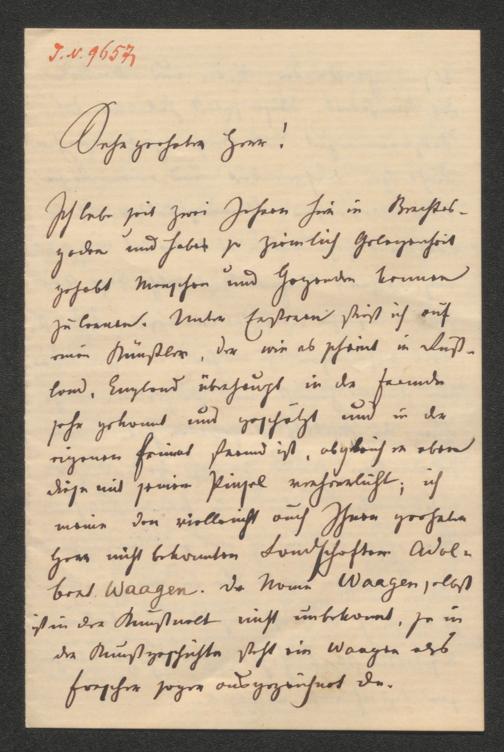 J. N. 9657
Sehr geehrter Herr!
Ich lebe seit zwei Jahren hier in Berchtes-
gaden und habe so ziemlich Gelegenheit
gehabt Menschen und Gegenden kennen
zu lernen. Unter Ersteren stieß ich auf
einen Künstler, der wie es scheint in Ruß-
land, England überhaupt in der Fremde
sehr gekannt und geschätzt und in der
eigenen Heimat fremd ist, obgleich er eben
diese mit seinem Pinsel verherrlicht; ich
meine den vielleicht auch Ihnen geehrter
Herr nicht bekannten Landschafter Adal-
bert Waagen. Der Name Waagen selbst
ist in der Kunstwelt nicht unbekannt, ja in
der Kunstgeschichte steht ein Waagen als
Forscher sogar ausgezeichnet da.